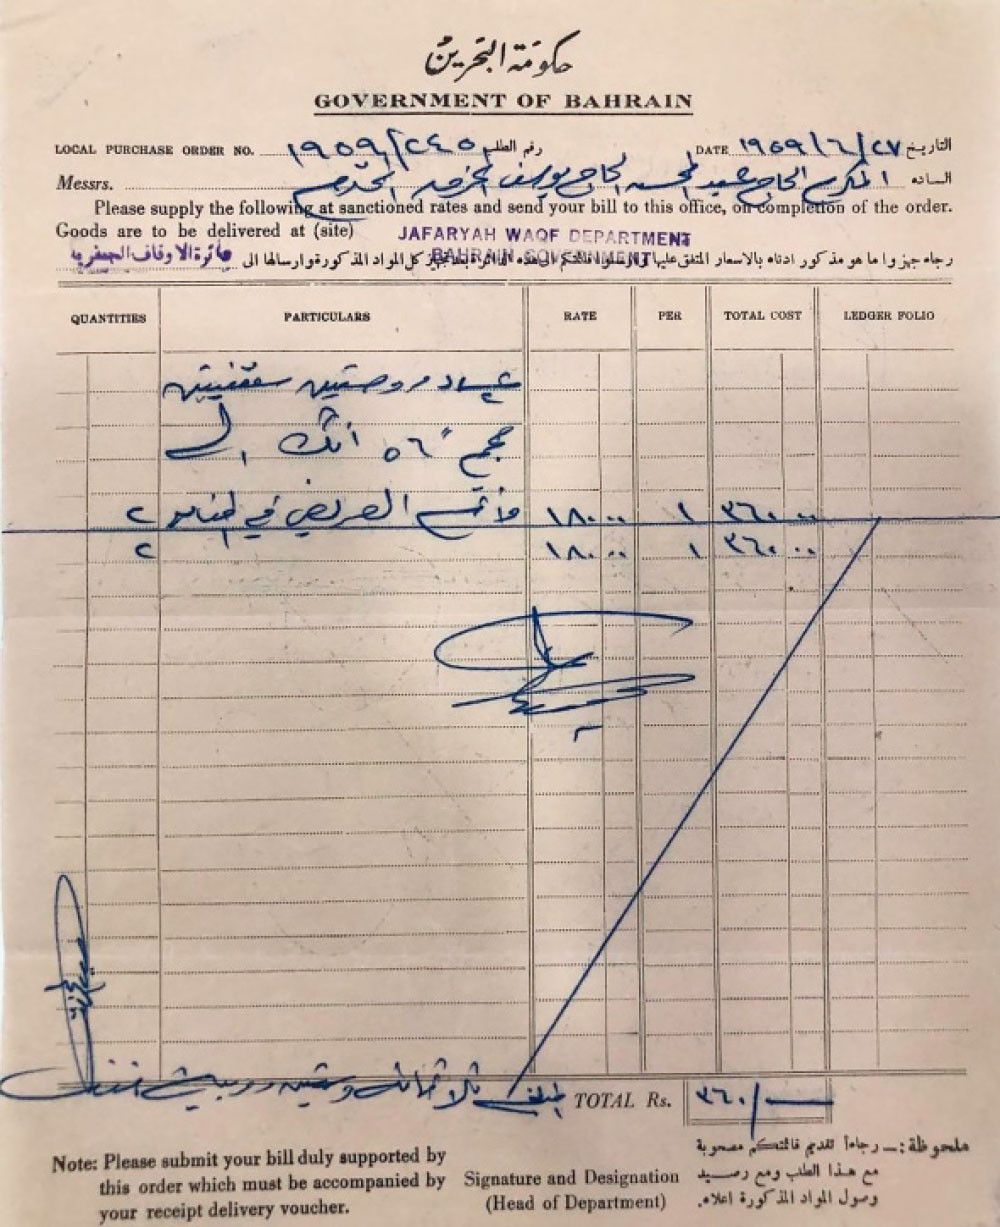 حكومة البحرين
GOVERNMENT OF BAHRAIN
LOCAL PURCHASE ORDER NO. ١٩٥٩/٢٤٥ رقم الطلب DATE ١٩٥٩/٦/٢٧ التاريخ
Messrs. المكرم الحاج عبد المحسن الحاج يوسف المخرق المحترم الساده
Please supply the following at sanctioned rates and send your bill to this office, on completion of the order.
Goods are to be delivered at (site) JAFARYAH WAQF DEPARTMENT
BAHRAIN GOVERNMENT
رجاء جهزوا ما هو مذكور ادناه بالاسعار المتفق عليها كل المواد المذكورة وارسالها الى دائرة الاوقاف الجعفرية
QUANTITIES PARTICULARS RATE PER TOTAL COST LEDGER FOLIO
مروحتين سقفيتين
حجم ٥٦" انك
العريض في ٢ ١٨٠ ٠٠ ١ ٣٦٠ ٠٠
٢ ١٨٠ ٠٠ ١ ٣٦٠ ٠٠
ثلاثمائة وستين روبية فقط TOTAL Rs. ٣٦٠/
Note: Please submit your bill duly supported by
this order which must be accompanied by
your receipt delivery voucher.
Signature and Designation
(Head of Department)
ملحوظة:ـ رجاءاً تقديم قائمتكم مصحوبة
مع هذا الطلب ومع رصيد
وصول المواد المذكورة اعلاه.